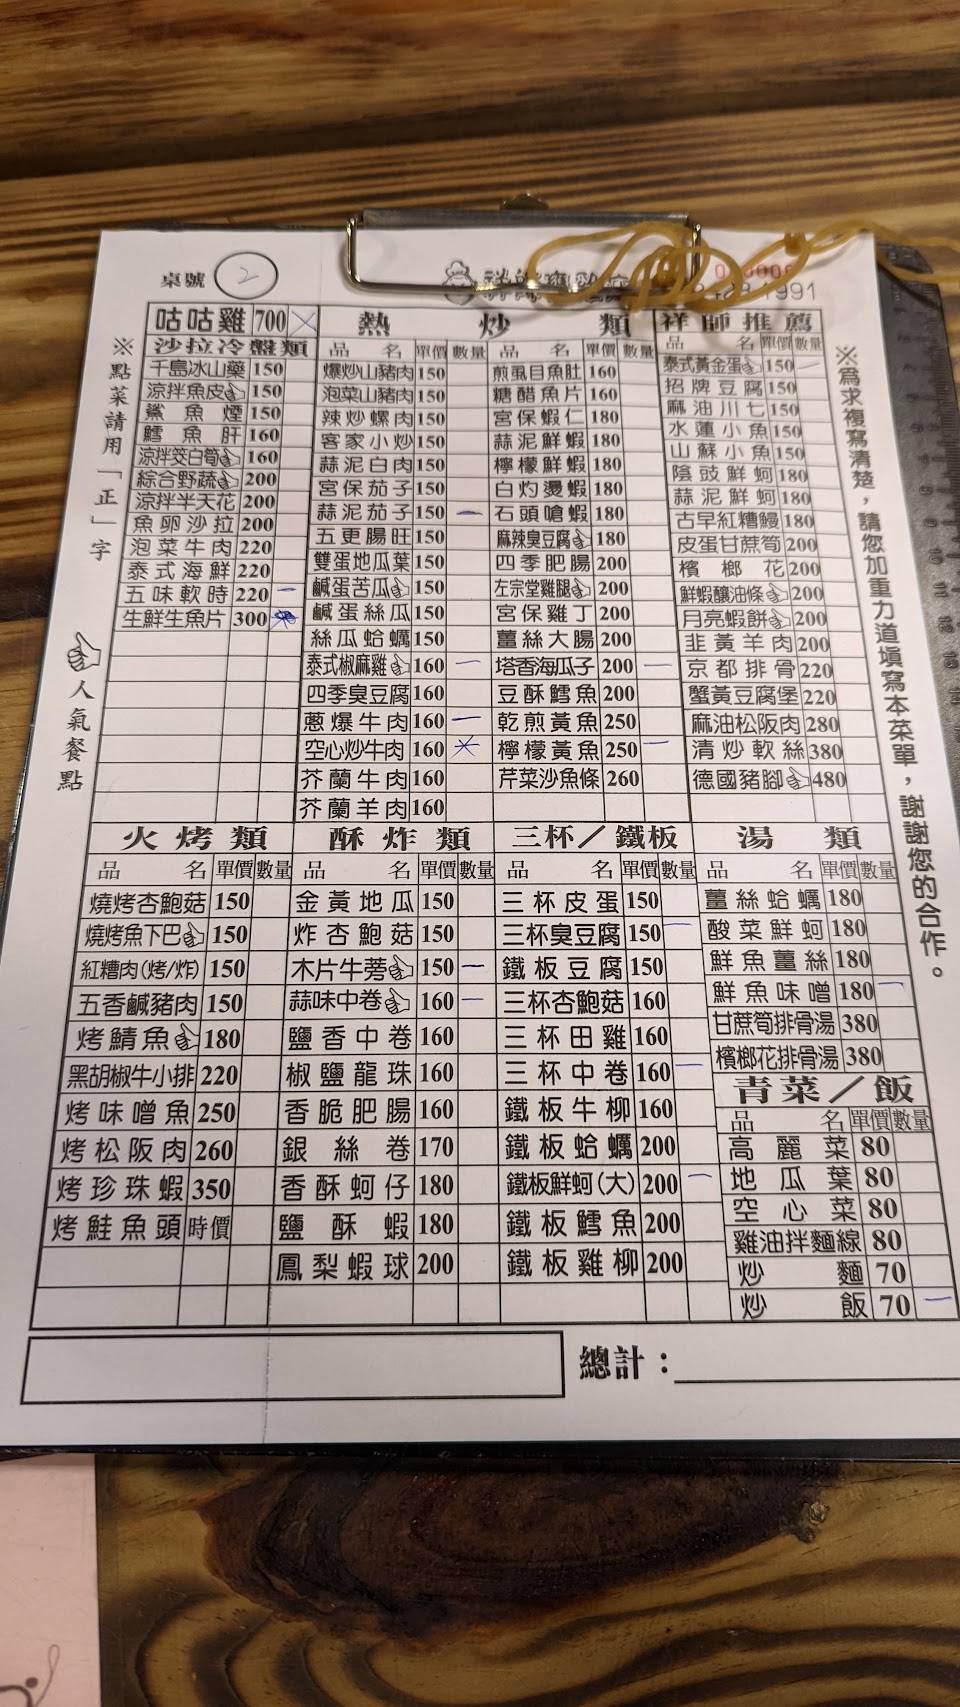 桌號 2
1991
咕咕雞 700
沙拉冷盤類
千島冰山藥 150
涼拌魚皮 150
鯊魚煙 150
鱈魚肝 160
涼拌筊白筍 160
綜合野蔬 200
涼拌半天花 200
魚卵沙拉 200
泡菜牛肉 220
泰式海鮮 220
五味軟時 220 一
生鮮生魚片 300
熱炒類
品名 單價 數量 品名 單價 數量
爆炒山豬肉 150
泡菜山豬肉 150
辣炒螺肉 150
客家小炒 150
蒜泥白肉 150
宮保茄子 150
蒜泥茄子 150 一
五更腸旺 150
雙蛋地瓜葉 150
鹹蛋苦瓜 150
鹹蛋絲瓜 150
絲瓜蛤蠣 150
泰式椒麻雞 160 一
四季臭豆腐 160
蔥爆牛肉 160 一
空心炒牛肉 160
芥蘭牛肉 160
芥蘭羊肉 160
煎虱目魚肚 160
糖醋魚片 160
宮保蝦仁 180
蒜泥鮮蝦 180
檸檬鮮蝦 180
白灼燙蝦 180
石頭嗆蝦 180
麻辣臭豆腐 180
四季肥腸 200
左宗堂雞腿 200
宮保雞丁 200
薑絲大腸 200
塔香海瓜子 200 一
豆酥鱈魚 200
乾煎黃魚 250
檸檬黃魚 250 一
芹菜沙魚條 260
祥師推薦
品名 單價 數量
泰式黃金蛋 150 一
招牌豆腐 150
麻油川七 150
水蓮小魚 150
山蘇小魚 150
陰豉鮮蚵 180
蒜泥鮮蚵 180
古早紅糟鰻 180
皮蛋甘蔗筍 200
檳榔花 200
鮮蝦釀油條 200
月亮蝦餅 200
韭黃羊肉 200
京都排骨 220
蟹黃豆腐堡 220
麻油松阪肉 280
清炒軟絲 380
德國豬腳 480
火烤類
品名 單價 數量
燒烤杏鮑菇 150
燒烤魚下巴 150
紅糟肉(烤/炸) 150
五香鹹豬肉 150
烤鯖魚 180
黑胡椒牛小排 220
烤味噌魚 250
烤松阪肉 260
烤珍珠蝦 350
烤鮭魚頭 時價
酥炸類
品名 單價 數量
金黃地瓜 150
炸杏鮑菇 150
木片牛蒡 150 一
蒜味中卷 160 一
鹽香中卷 160
椒鹽龍珠 160
香脆肥腸 160
銀絲卷 170
香酥蚵仔 180
鹽酥蝦 180
鳳梨蝦球 200
三杯/鐵板
品名 單價 數量
三杯皮蛋 150
三杯臭豆腐 150 一
鐵板豆腐 150
三杯杏鮑菇 160
三杯田雞 160
三杯中卷 160 一
鐵板牛柳 160
鐵板蛤蠣 200
鐵板鮮蚵(大) 200 一
鐵板鱈魚 200
鐵板雞柳 200
湯類
品名 單價 數量
薑絲蛤蠣 180
酸菜鮮蚵 180
鮮魚薑絲 180
鮮魚味噌 180 一
甘蔗筍排骨湯 380
檳榔花排骨湯 380
青菜/飯
品名 單價 數量
高麗菜 80
地瓜葉 80
空心菜 80
雞油拌麵線 80
炒麵 70
炒飯 70 一
總計：
※點菜請用「正」字
人氣餐點
※為求複寫清楚，請您加重力道填寫本菜單，謝謝您的合作。